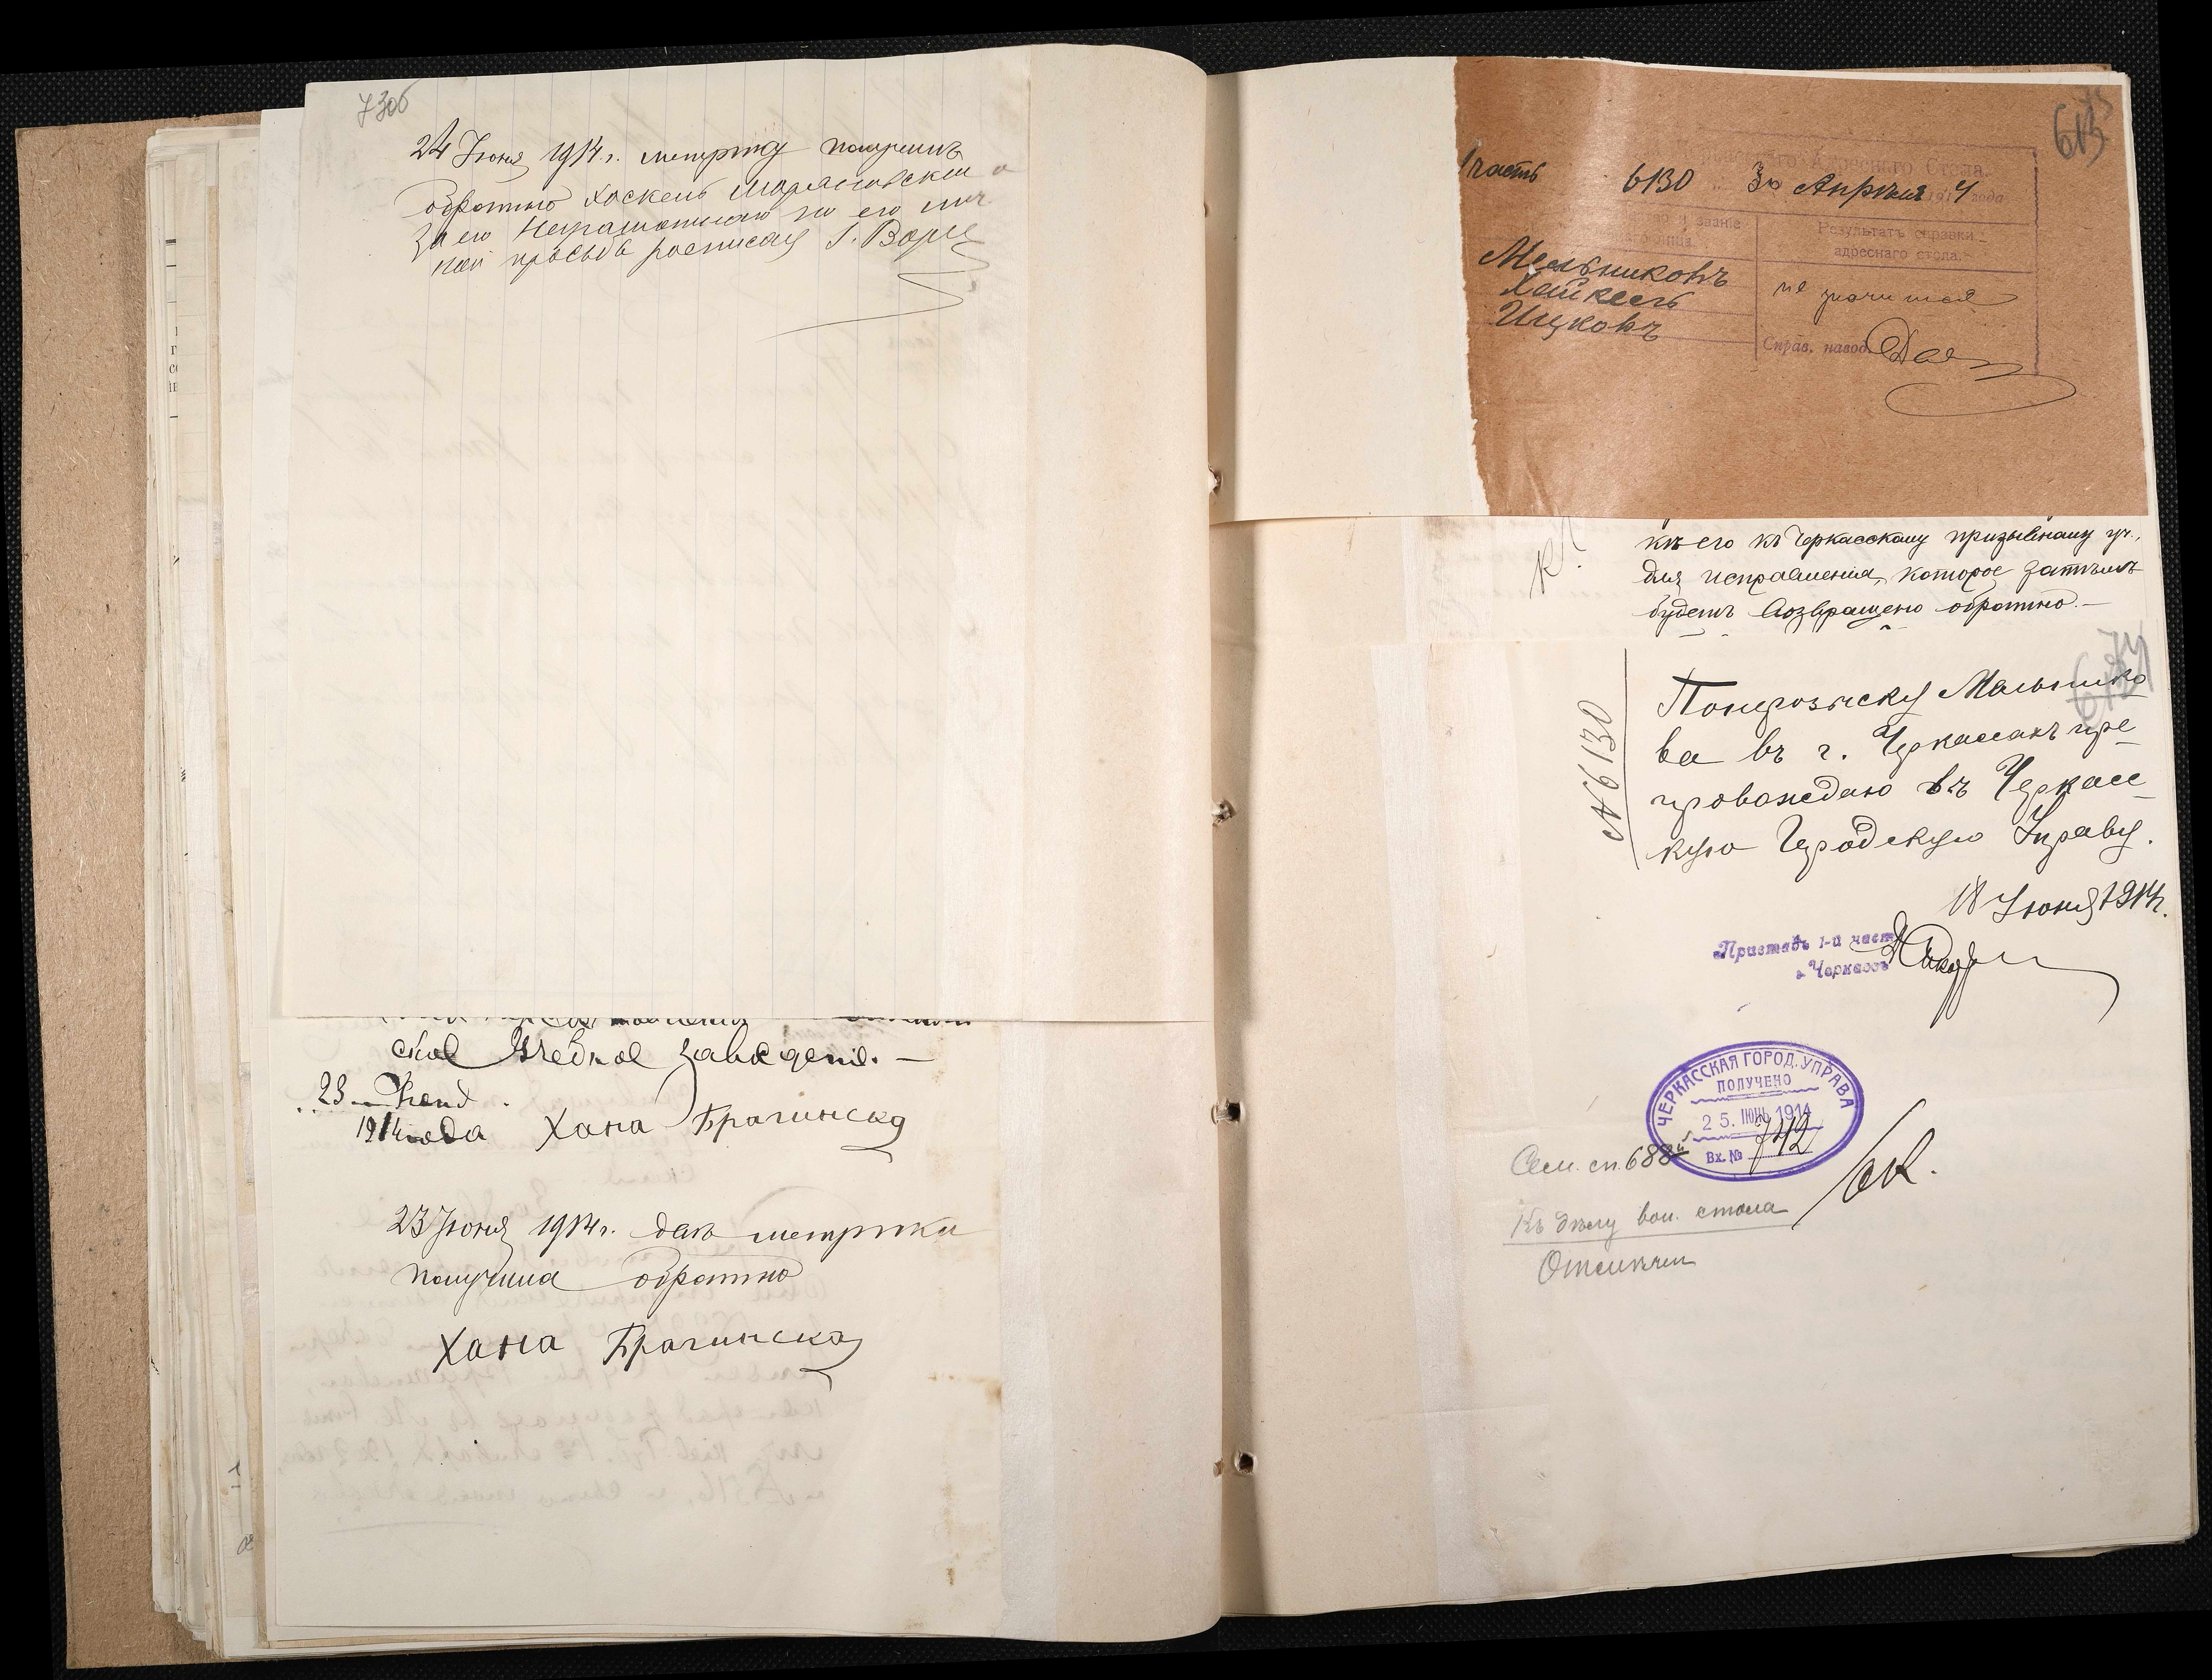 73об
24 Июня 1914 г. метрику получилъ
обратно Хаскель
За его неграмотнаго по его лич
ной просьбѣ росписался
ское Учебное заведеніе. —
23 Июня
1914 года Хана Брагинска
23 Июня 1914 г. два метрики
получила обратно
Хана Брагинская
75
613
Адреснаго Стола.
1 часть 6130 30 Апрѣля 1914 года
и званіе
лица
Результатъ справки
адреснаго стола.
Мельниковъ
Хайкель
Ицковъ
не значится
Справ. навод.
къ его къ Черкасскому призывному уч.,
для исправленія, которое затѣмъ
будетъ возвращено обратно. —
74
№ 6130
По нерозыску Мельнико
ва въ г. Черкассахъ пре
провождаю въ Черкасс
кую Городскую Управу.
18 Июня 1914 г.
Приставъ 1-й части
г. Черкассъ
ЧЕРКАССКАЯ ГОРОД. УПРАВА
ПОЛУЧЕНО
25. ИЮН. 1914
Вх. № 742
Сем. сп. 688
Къ дѣлу воин. стола